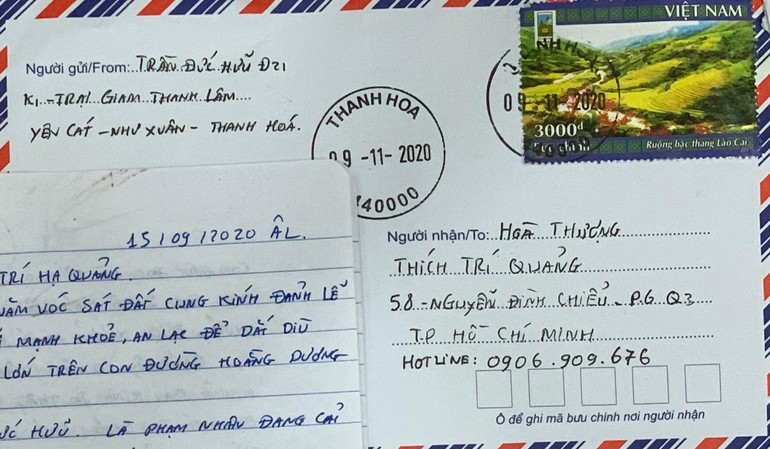 VIỆT NAM
Người gửi/From: TRẦN ĐỨC HỮU Đ21
K1 - TRẠI GIAM THANH LÂM
YÊN CÁT - NHƯ XUÂN - THANH HOÁ.
THANH HOA
09 -11- 2020
440000
09 -11- 2020
3000đ
Ruộng bậc thang Lào Cai
15/09/2020 ÂL.
TRÍ HẠ QUẢNG.
NĂM VÓC SÁT ĐẤT CUNG KÍNH ĐẢNH LỄ
MẠNH KHOẺ, AN LẠC ĐỂ DẮT DIÙ
LỚN TRÊN CON ĐƯỜNG HOẰNG DƯƠNG
HỮU. LÀ PHẠM NHÂN ĐANG CẢI
Người nhận/To: HOÀ THƯỢNG
THÍCH TRÍ QUẢNG
58 - NGUYỄN ĐÌNH CHIỂU - P.6 Q3
T.P HỒ CHÍ MINH
HOTLINE: 0906.909.676
Ô để ghi mã bưu chính nơi người nhận